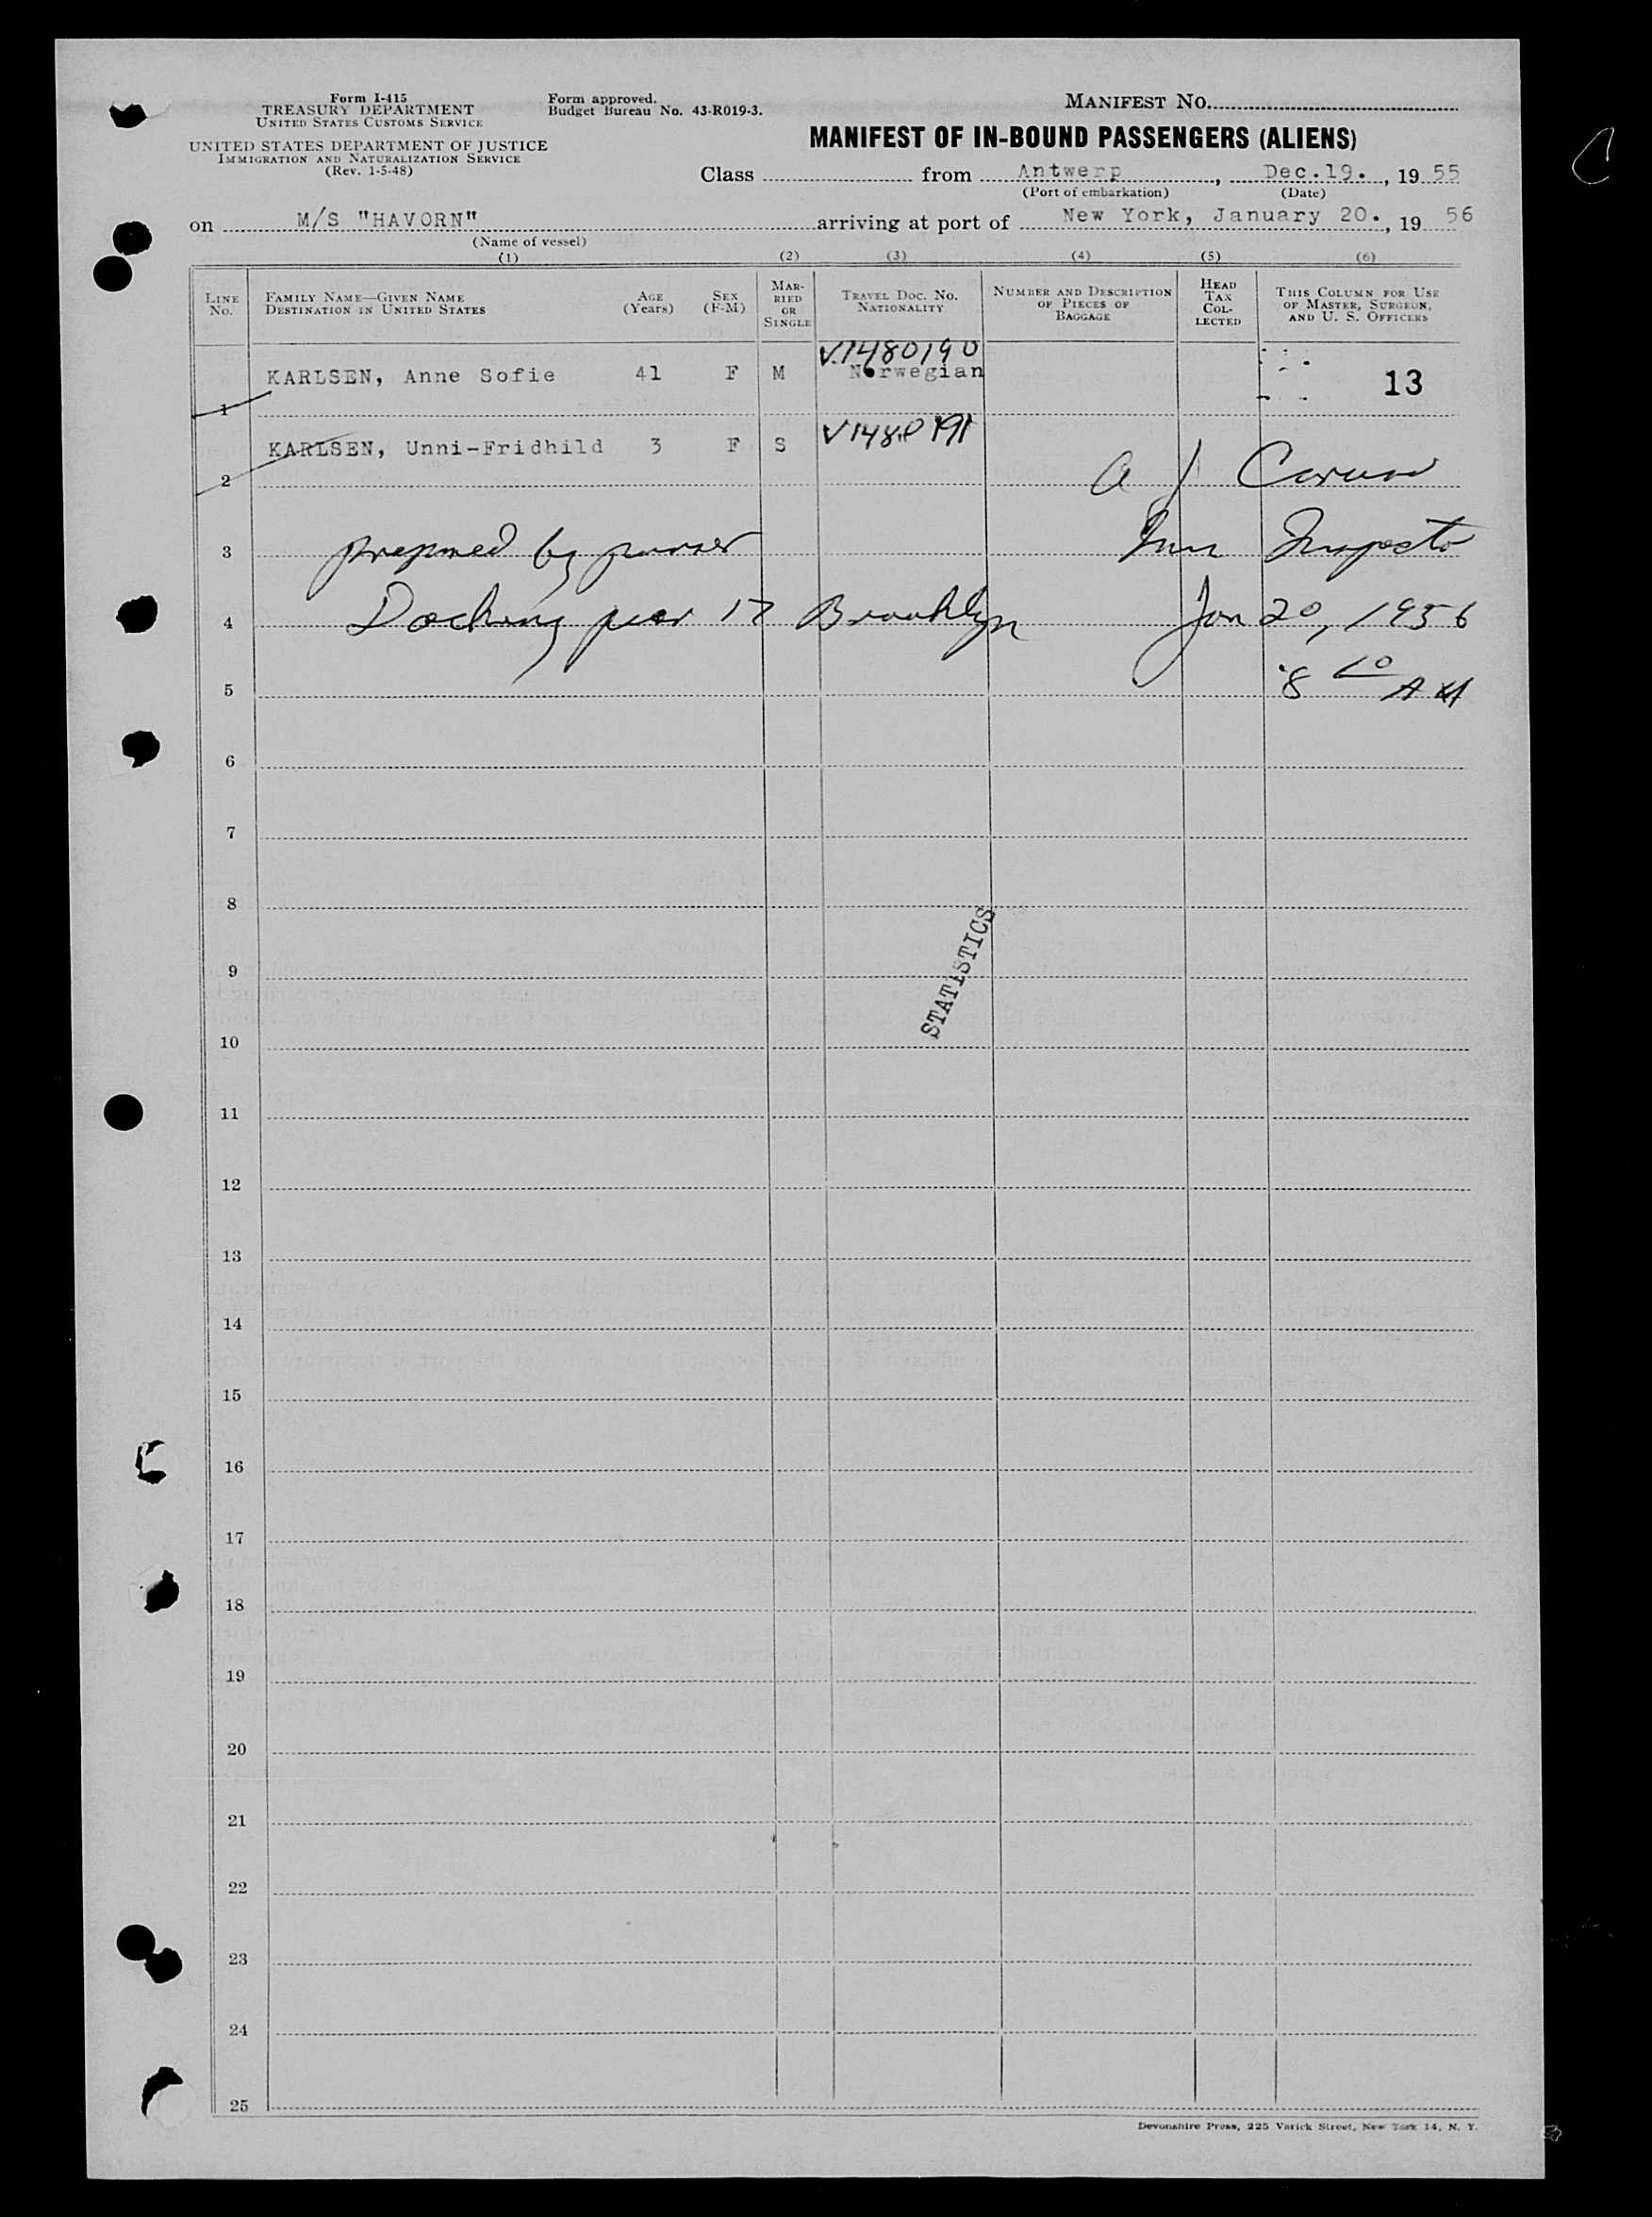 Form I-415
TREASURY DEPARTMENT
UNITED STATES CUSTOMS SERVICE
UNITED STATES DEPARTMENT OF JUSTICE
IMMIGRATION AND NATURALIZATION SERVICE
(Rev. 1-5-48)
Form approved.
Budget Bureau No. 43-R019-3.
MANIFEST NO.
MANIFEST OF IN-BOUND PASSENGERS (ALIENS)
Class from Antwerp, Dec.19., 19 55
(Port of embarkation) (Date)
on M/S "HAVORN" arriving at port of New York, January 20., 19 56
(Name of vessel)
(1) (2) (3) (4) (5) (6)
LINE No.
FAMILY NAME—GIVEN NAME
DESTINATION IN UNITED STATES
AGE (Years)
SEX (F-M)
MARRIED OR SINGLE
TRAVEL DOC. NO. NATIONALITY
NUMBER AND DESCRIPTION OF PIECES OF BAGGAGE
HEAD TAX COLLECTED
THIS COLUMN FOR USE OF MASTER, SURGEON, AND U. S. OFFICERS
V.1480190
KARLSEN, Anne Sofie 41 F M Norwegian 13
1
KARLSEN, Unni-Fridhild 3 F S V1480191
2
A J Caruso
3 prepared by purser Imm Inspector
4 Docking pier 17 Brooklyn Jan 20, 1956
5 8 AM
6
7
8
STATISTICS
9
10
11
12
13
14
15
16
17
18
19
20
21
22
23
24
25
Devonshire Press, 225 Varick Street, New York 14, N. Y.